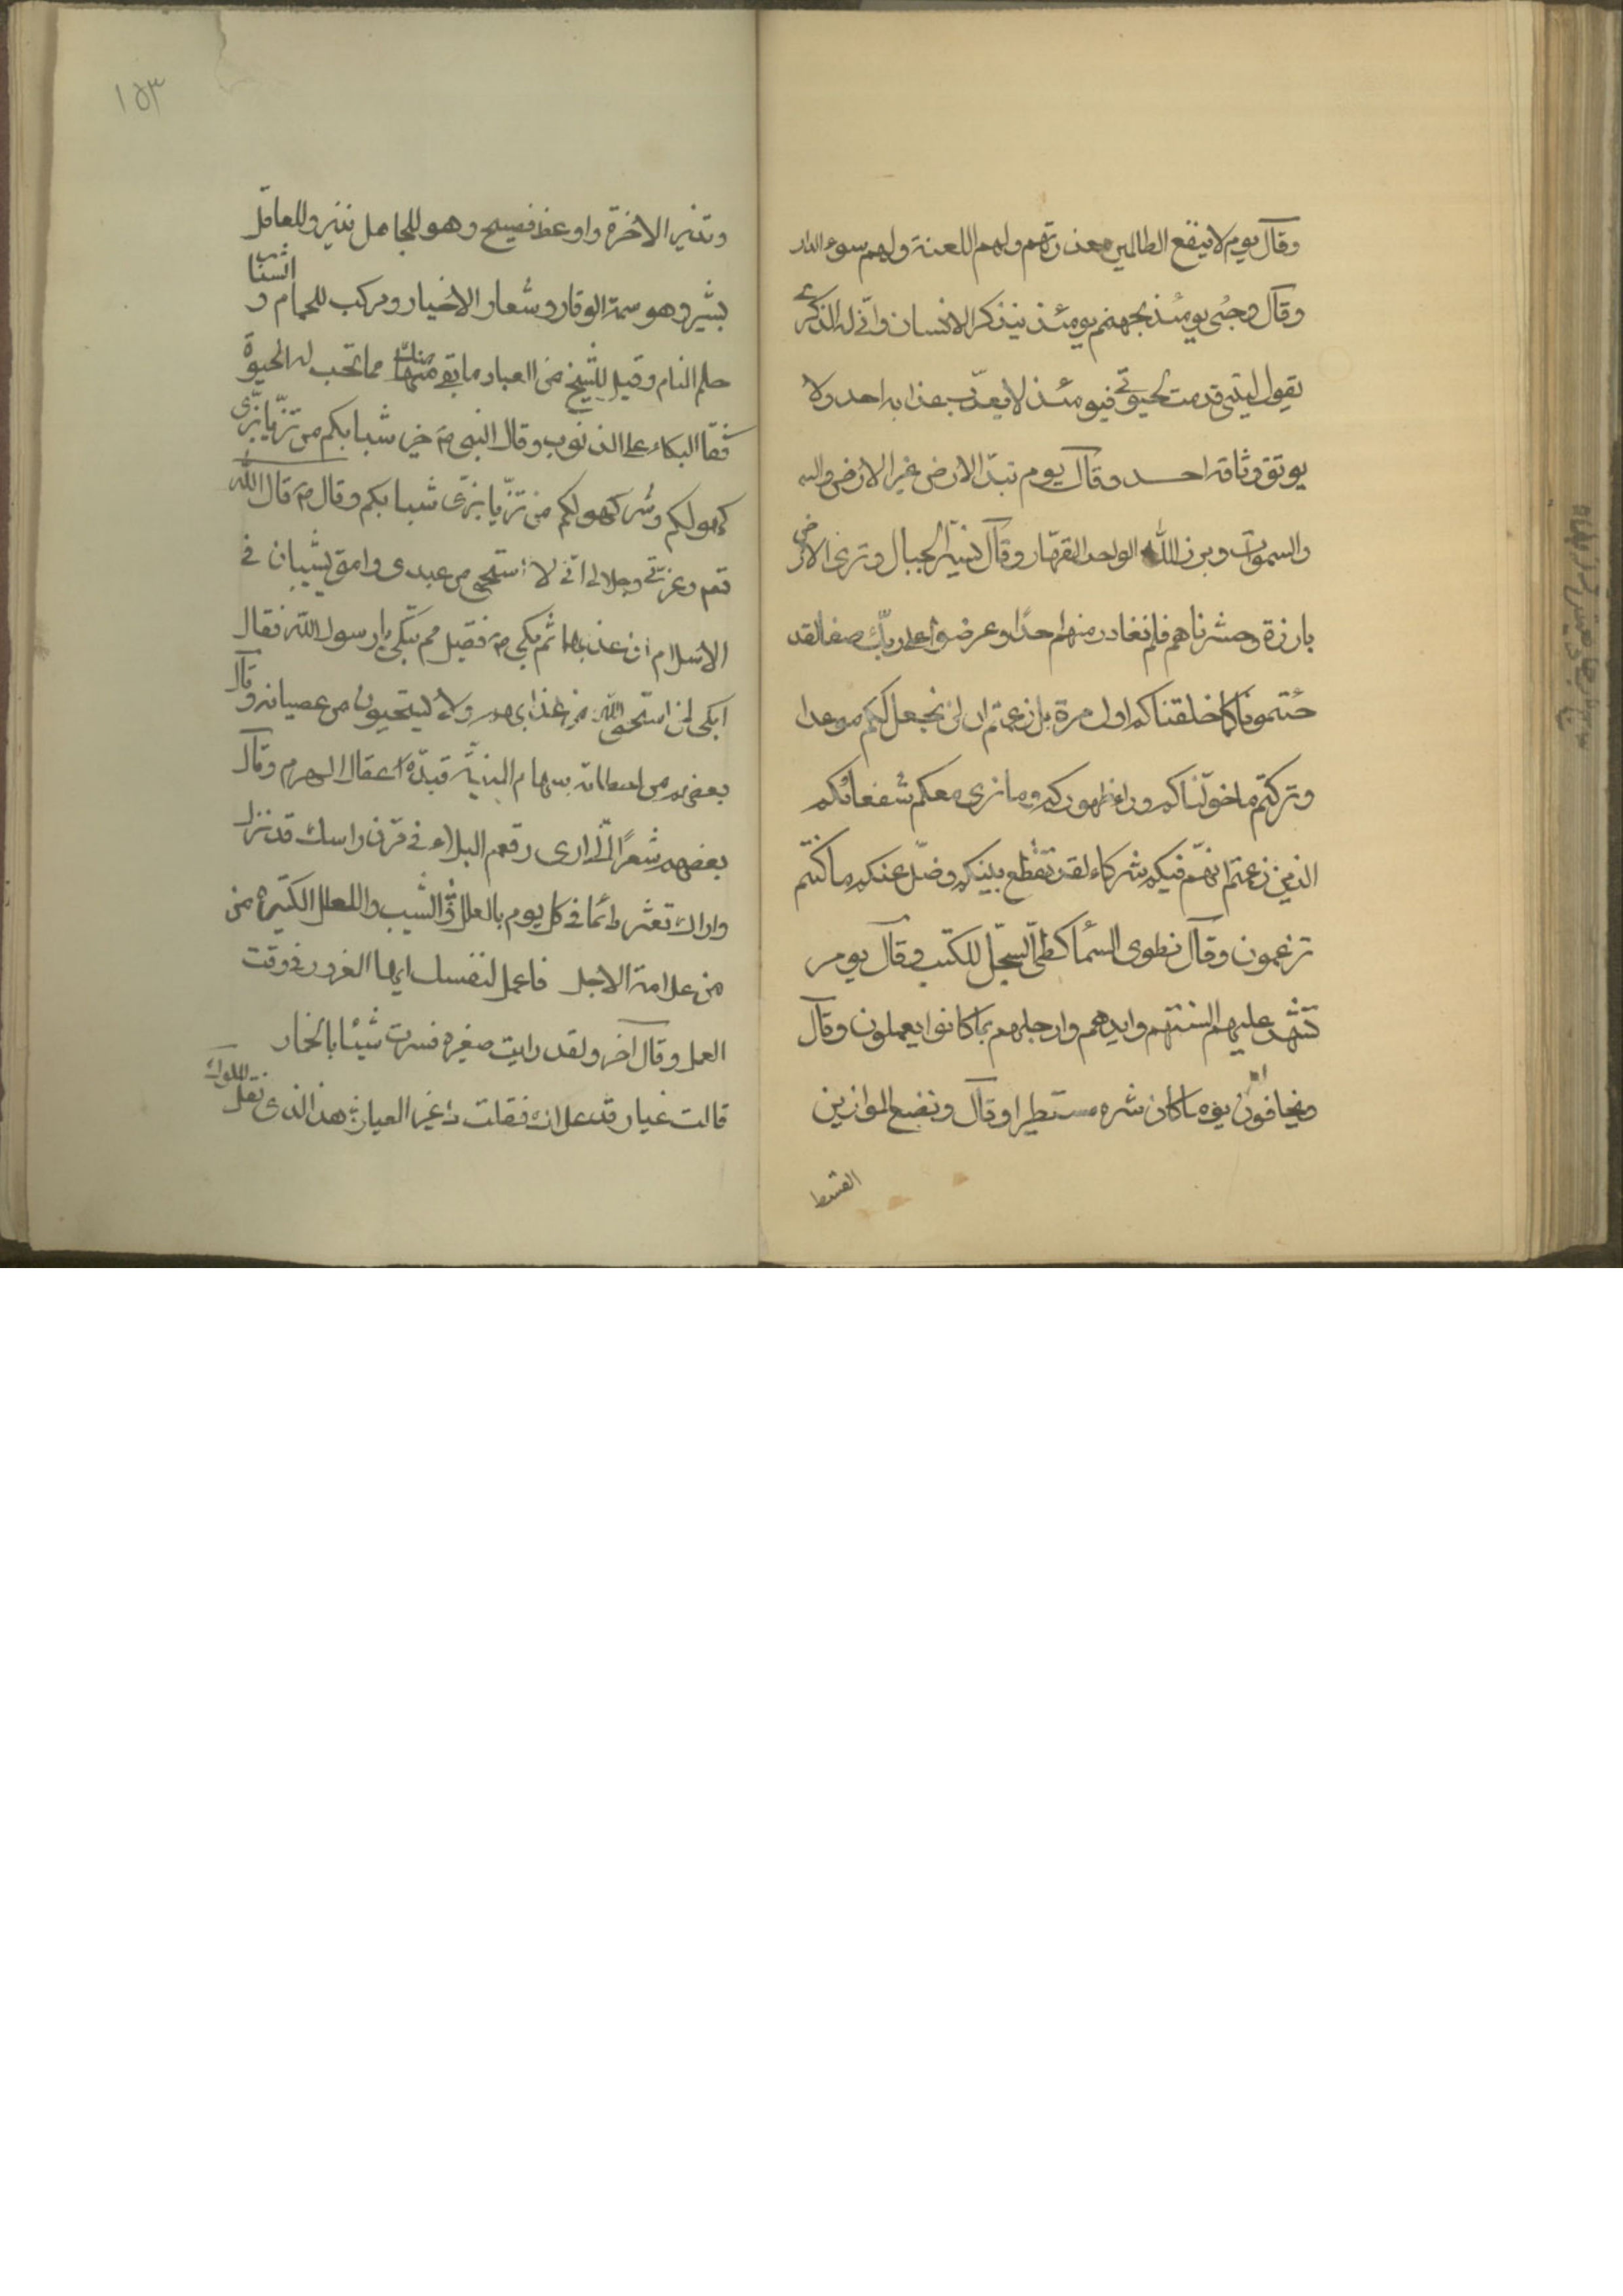 وقال يوم لا ينفع الظالمين معذرتهم ولهم اللعنة ولهم سوء الدار
وقال وجئ يومئذ بجهنم يومئذ يتذكر الانسان وانى له الذكرى
يقول ليتنى قدمت لحيوتى فيومئذ لا يعذب عذابه احد ولا
يوثق وثاقه احد وقال يوم تبدل الارض غير الارض والسـ
والسموات وبرزوا لله الواحد القهار وقال نسير الجبال وترى الارض
بارزة وحشرناهم فلم نغادر منهم احدا وعرضوا على ربك صفا لقد
جئتمونا كما خلقناكم اول مرة بل زعمتم ان لن نجعل لكم موعدا
وتركتم ما خولناكم وراء ظهوركم وما نرى معكم شفعائكم
الذين زعمتم انهم فيكم شركاء لقد تقطع بينكم وضل عنكم ما كنتم
تزعمون وقال نطوى السماء كطى السجل للكتب وقال يوم
تشهد عليهم السنتهم وايديهم وارجلهم بما كانوا يعملون وقال
ويخافون يوما كان شره مستطيرا وقال ونضع الموازين
القسط
١٥٣
ونذير الاخرة واوعظ فصيح وهو للجاهل نذير وللعاقل
بشير وهو سمة الوقار وشعار الاخيار ومركب للحمام و الشباب
حلم النام وقيل للشيخ من العباد ما بقى منك مما تحب له الحيوة
فقال البكاء على الذنوب وقال النبى ص خير شبابكم من تزيا بزى
كهولكم وشر كهولكم من تزيا بزى شبابكم وقال ص قال الله
تعم وعزتى وجلالى انى لا استحيى من عبدى وامتى يشيبان فى
الاسلام ان عذبهما ثم بكى ص فقيل مم تبكى يا رسول الله فقال
ابكى لمن استحيى الله من عذابهم ولا يستحيون من عصيانه وقال
بعضهم من اخطاته سهام المنية قيده عقال الهرم وقال
بعضهم شعرا انى ارى رقم البلاء فى قرن راسك قد نزل
واراك تعثر دائما فى كل يوم بالعلل والشيب والعلل الكثيرة من
من علامة الاجل فاعمل لنفسك ايها الغرور فى وقت
العمل وقال آخر ولقد رايت صغيرة فسترت شيبا بالخمار
قالت غبار قد علاك فقلت ذا غير الغبار هذا الذى نقل الملوك